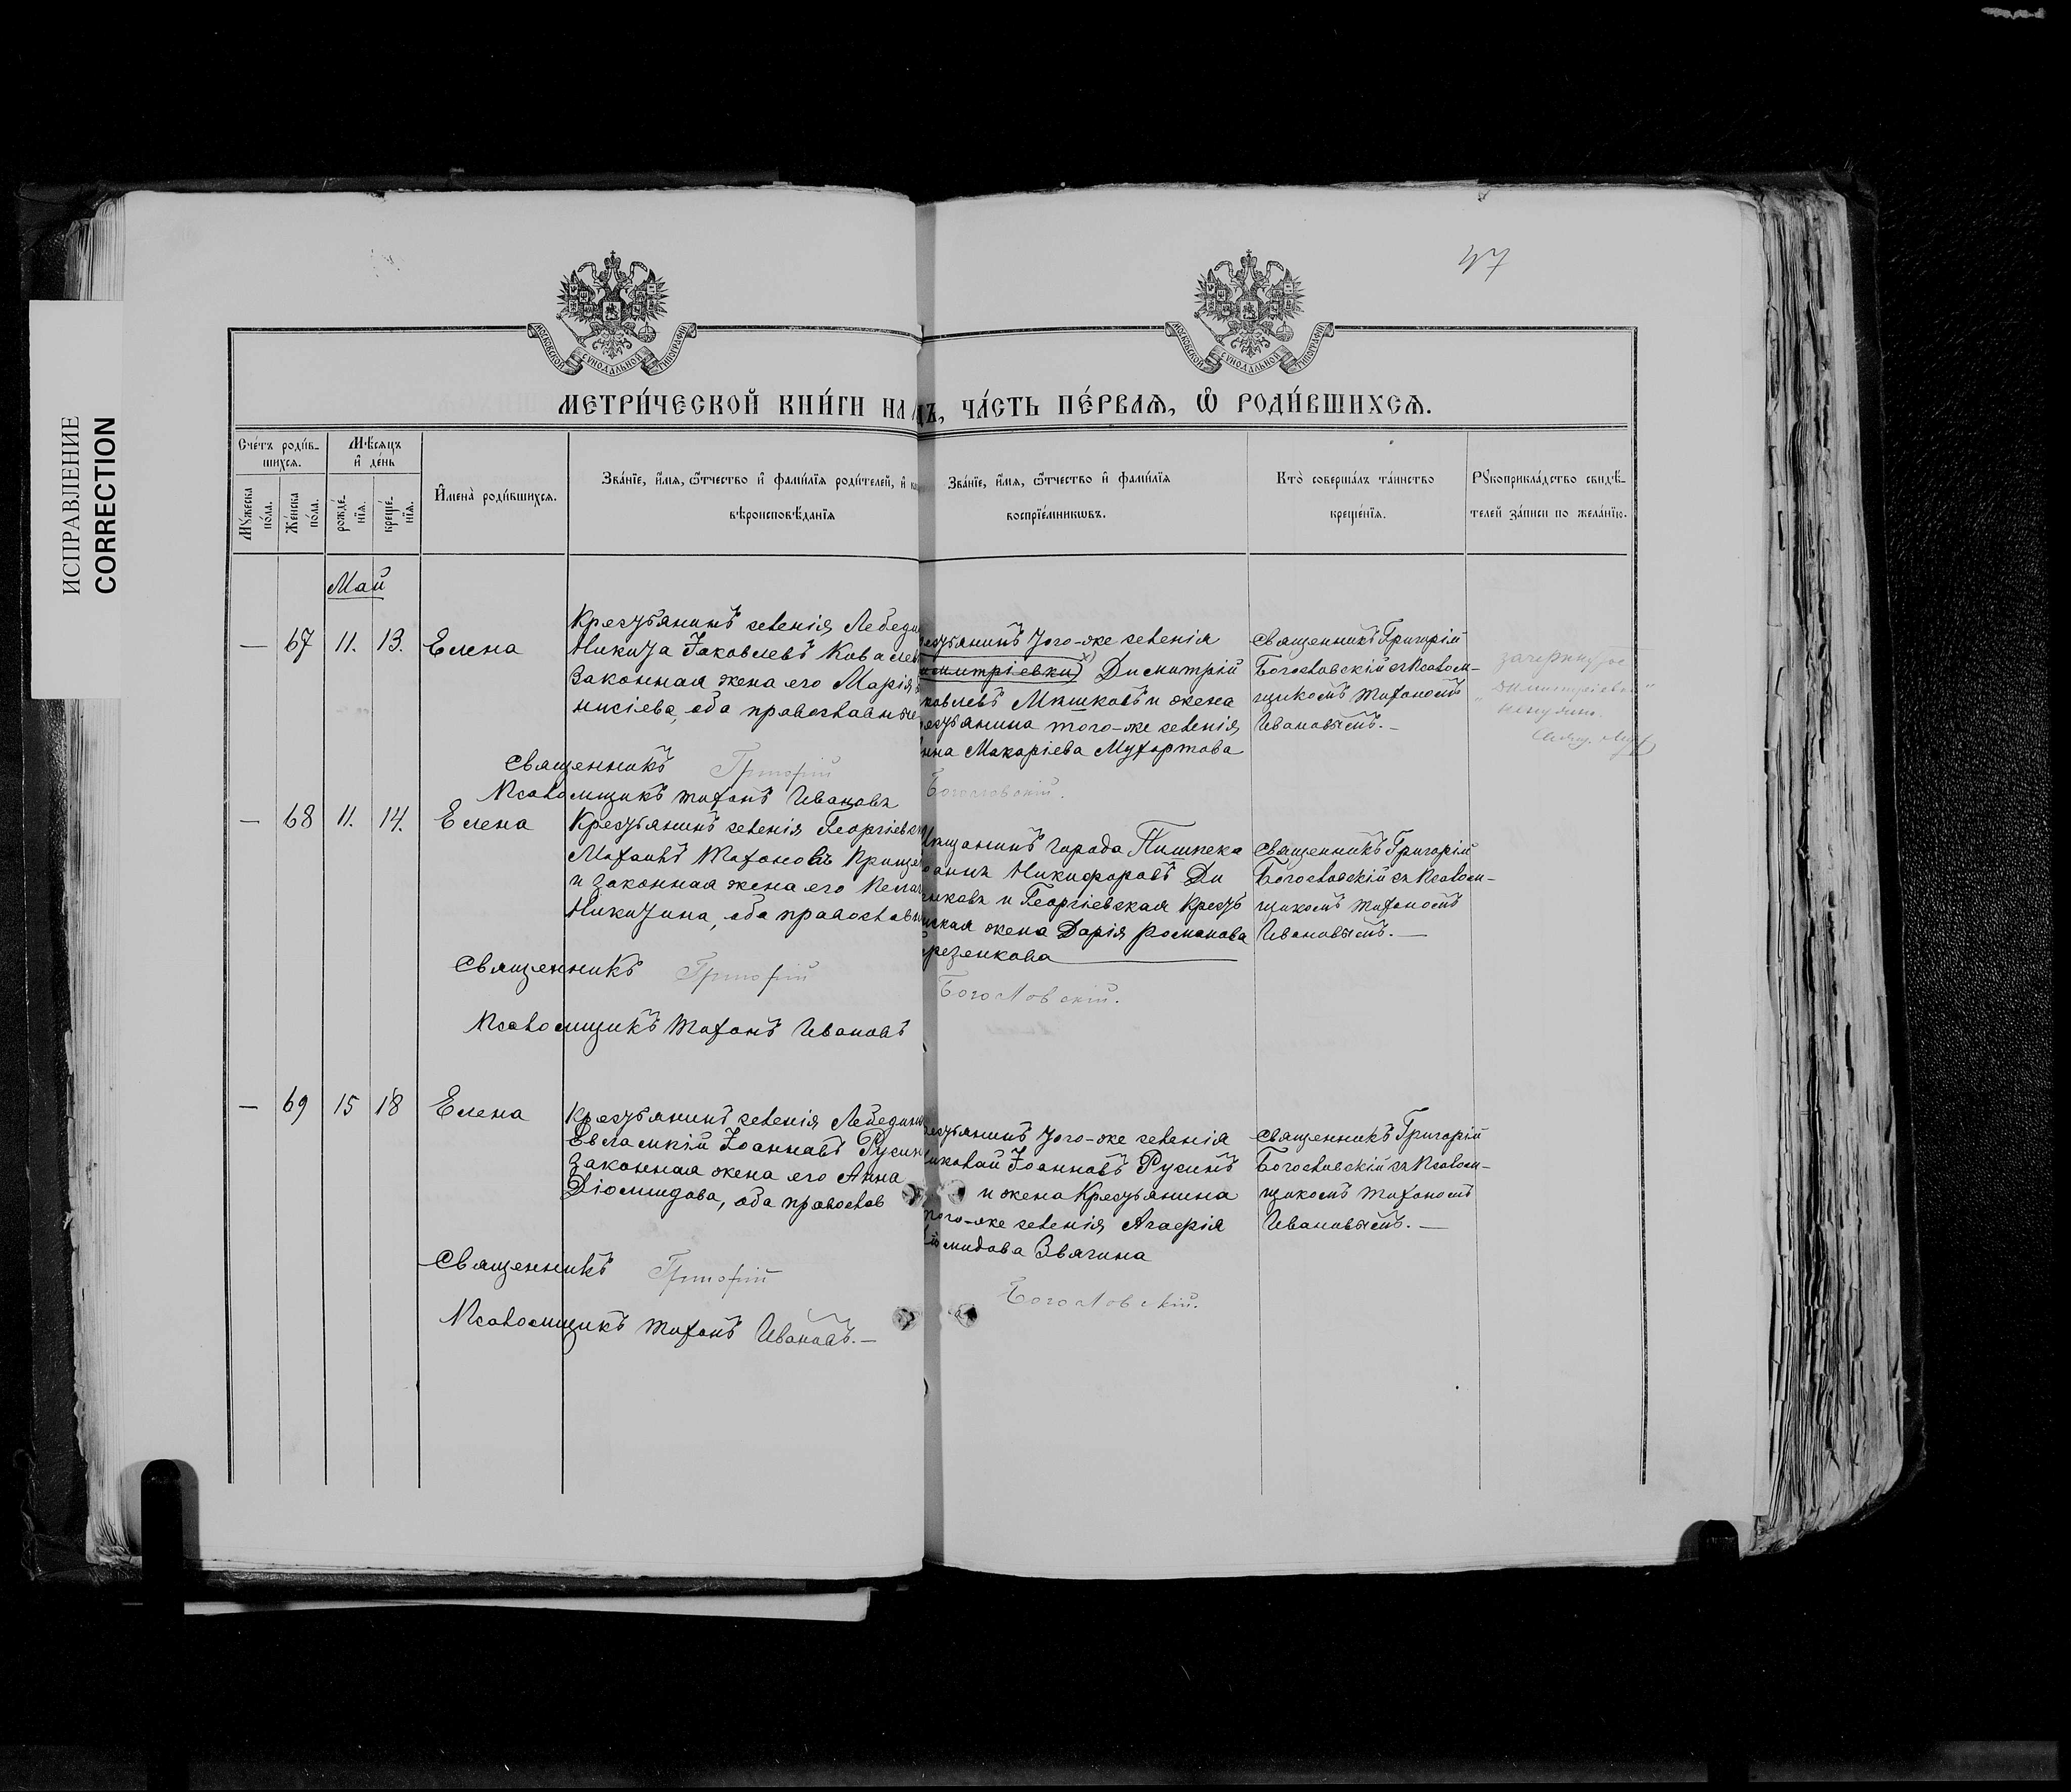 47
ИСПРАВЛЕНИЕ
CORRECTION
МОСКОВСКОЙ СѴНОДАЛЬНОЙ ТИПОГРАФІИ
МОСКОВСКОЙ СѴНОДАЛЬНОЙ ТИПОГРАФІИ
МЕТРИ́ЧЕСКОЙ КНИ́ГИ НА
ДЪ, ЧА́СТЬ ПЕ́РВАѦ, Ѡ҆ РОДИ́ВШИХСѦ.
Сче́тъ роди́в-
шихсѧ.
Мѣ́сѧцъ
и҆ де́нь
Мꙋ́жеска
по́ла.
Же́нска
по́ла.
рожде́-
нїѧ.
креще́-
нїѧ.
И҆мена̀ роди́вшихсѧ.
Зва́нїе, и҆́мѧ, ѻ҆́тчество и҆ фамѝлїѧ роди́телей, и҆
вѣроисповѣ́данїѧ
Зва́нїе, и҆́мѧ, ѻ҆́тчество и҆ фамѝлїѧ
воспрїе́мникѡвъ.
Кто̀ соверша́лъ та́инство
креще́нїѧ.
Рꙋкоприкла́дство свидѣ́-
телей за́писи по жела́нїю.
Май
— 67 11. 13. Елена
Крестьянинъ селенія Лебеди
Никита Іаковлевъ Ковалев
законная жена его Марія
нисіева, оба православные
естьянинъ того-же селенія
митріевки) Димитрій
ковлевъ Мишковъ и жена
рестьянина того-же селенія
нна Макаріева Мухортова
Священникъ Григорій
Богословскій съ Псалом-
щикомъ Тихономъ
Ивановымъ. —
зачеркнутое
"Димитріевки"
Священникъ Григорій
Богословскій.
Псаломщикъ Тихонъ Ивановъ
— 68 11. 14. Елена
Крестьянинъ селенія Георгіевк
Тихоновъ
и законная жена его
Никитина, оба православн
щанинъ города Пишпека
оаннъ Никифоровъ Ди
и Георгіевская Кресть
нская жена Дарія Романова
резенкова
Священникъ Григорій
Богословскій съ Псалом-
щикомъ Тихономъ
Ивановымъ. —
Священникъ Григорій
Богословскій.
Псаломщикъ Тихонъ Ивановъ
— 69 15 18 Елена
Крестьянинъ селенія Лебедин
Евлампій Іоанновъ Русин
законная жена его Анна
Діомидова, оба православ
рестьянинъ того-же селенія
иколай Іоанновъ Русинъ
и жена Крестьянина
того-же селенія Агафія
іомидова Звягина
Священникъ Григорій
Богословскій съ Псалом-
щикомъ Тихономъ
Ивановымъ. —
Священникъ Григорій
Богословскій.
Псаломщикъ Тихонъ Ивановъ. —